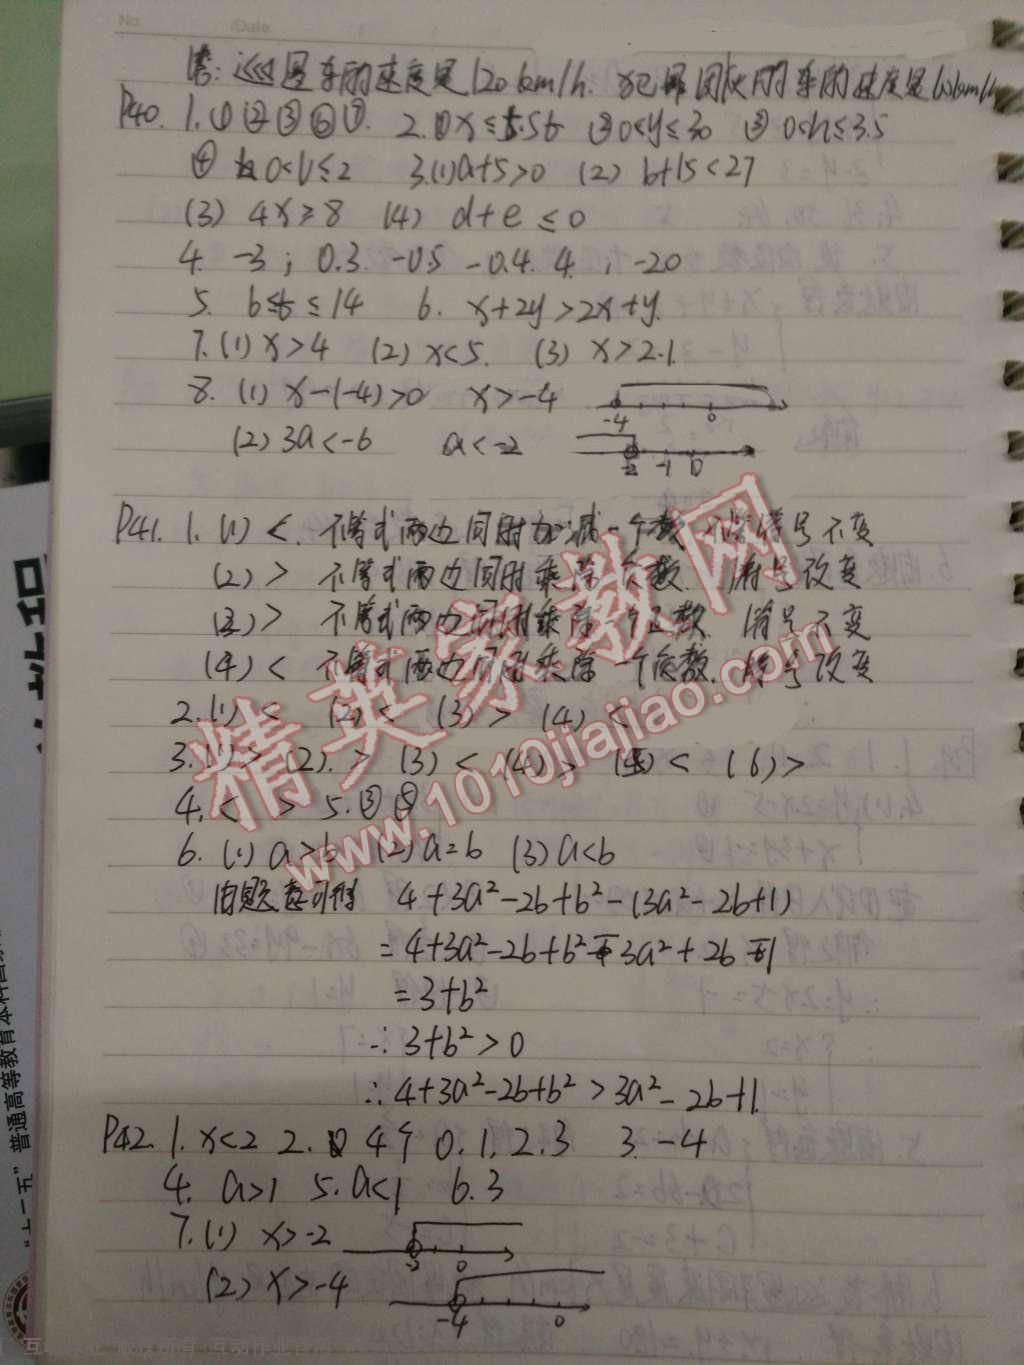 No. Date
答：巡逻车的速度是120km/h. 犯罪团伙的车的速度是
P40. 1.①②③⑥⑦. 2.①x≤5.5t ②0<y≤30 ③0<h≤3.5
④ 0<v≤2 3.(1)a+5>0 (2) b+15<27
(3) 4x≥8 (4) d+e≤0
4. -3; 0.3 -0.5 -0.4. 4; -20
5. 6≤t≤14 6. x+2y>2x+y.
7.(1) x>4 (2) x<5. (3) x>2.1
8. (1) x-(-4)>0 x>-4
-4 0
(2) 3a<-6 a<-2
-2 -1 0
P41. 1. (1) <. 不等式两边同时加减一个数 不等符号不变
(2) > 不等式两边同时乘除一个负数. 符号改变
(3) > 不等式两边同时乘除一个正数. 符号不变
(4) < 不等式两边同时乘除一个负数. 符号改变
2.(1) < (2) < (3) > (4) <
3.(1) > (2). > (3) < (4) > (5) < (6) >
4. < > 5.③⑤
6. (1) a>b (2) a=b (3) a<b
由题意可得 4+3a²-2b+b²-(3a²-2b+1)
=4+3a²-2b+b²-3a²+2b-1
=3+b²
∵3+b²>0
∴4+3a²-2b+b²>3a²-2b+1.
P42. 1. x<2 2. 4个 0.1.2.3 3. -4
4. a>1 5. a<1 6. 3
7.(1) x>-2
0
(2) x>-4
-4 0
精英家教网
www.1010jiajiao.com
"十一五"普通高等教育本科